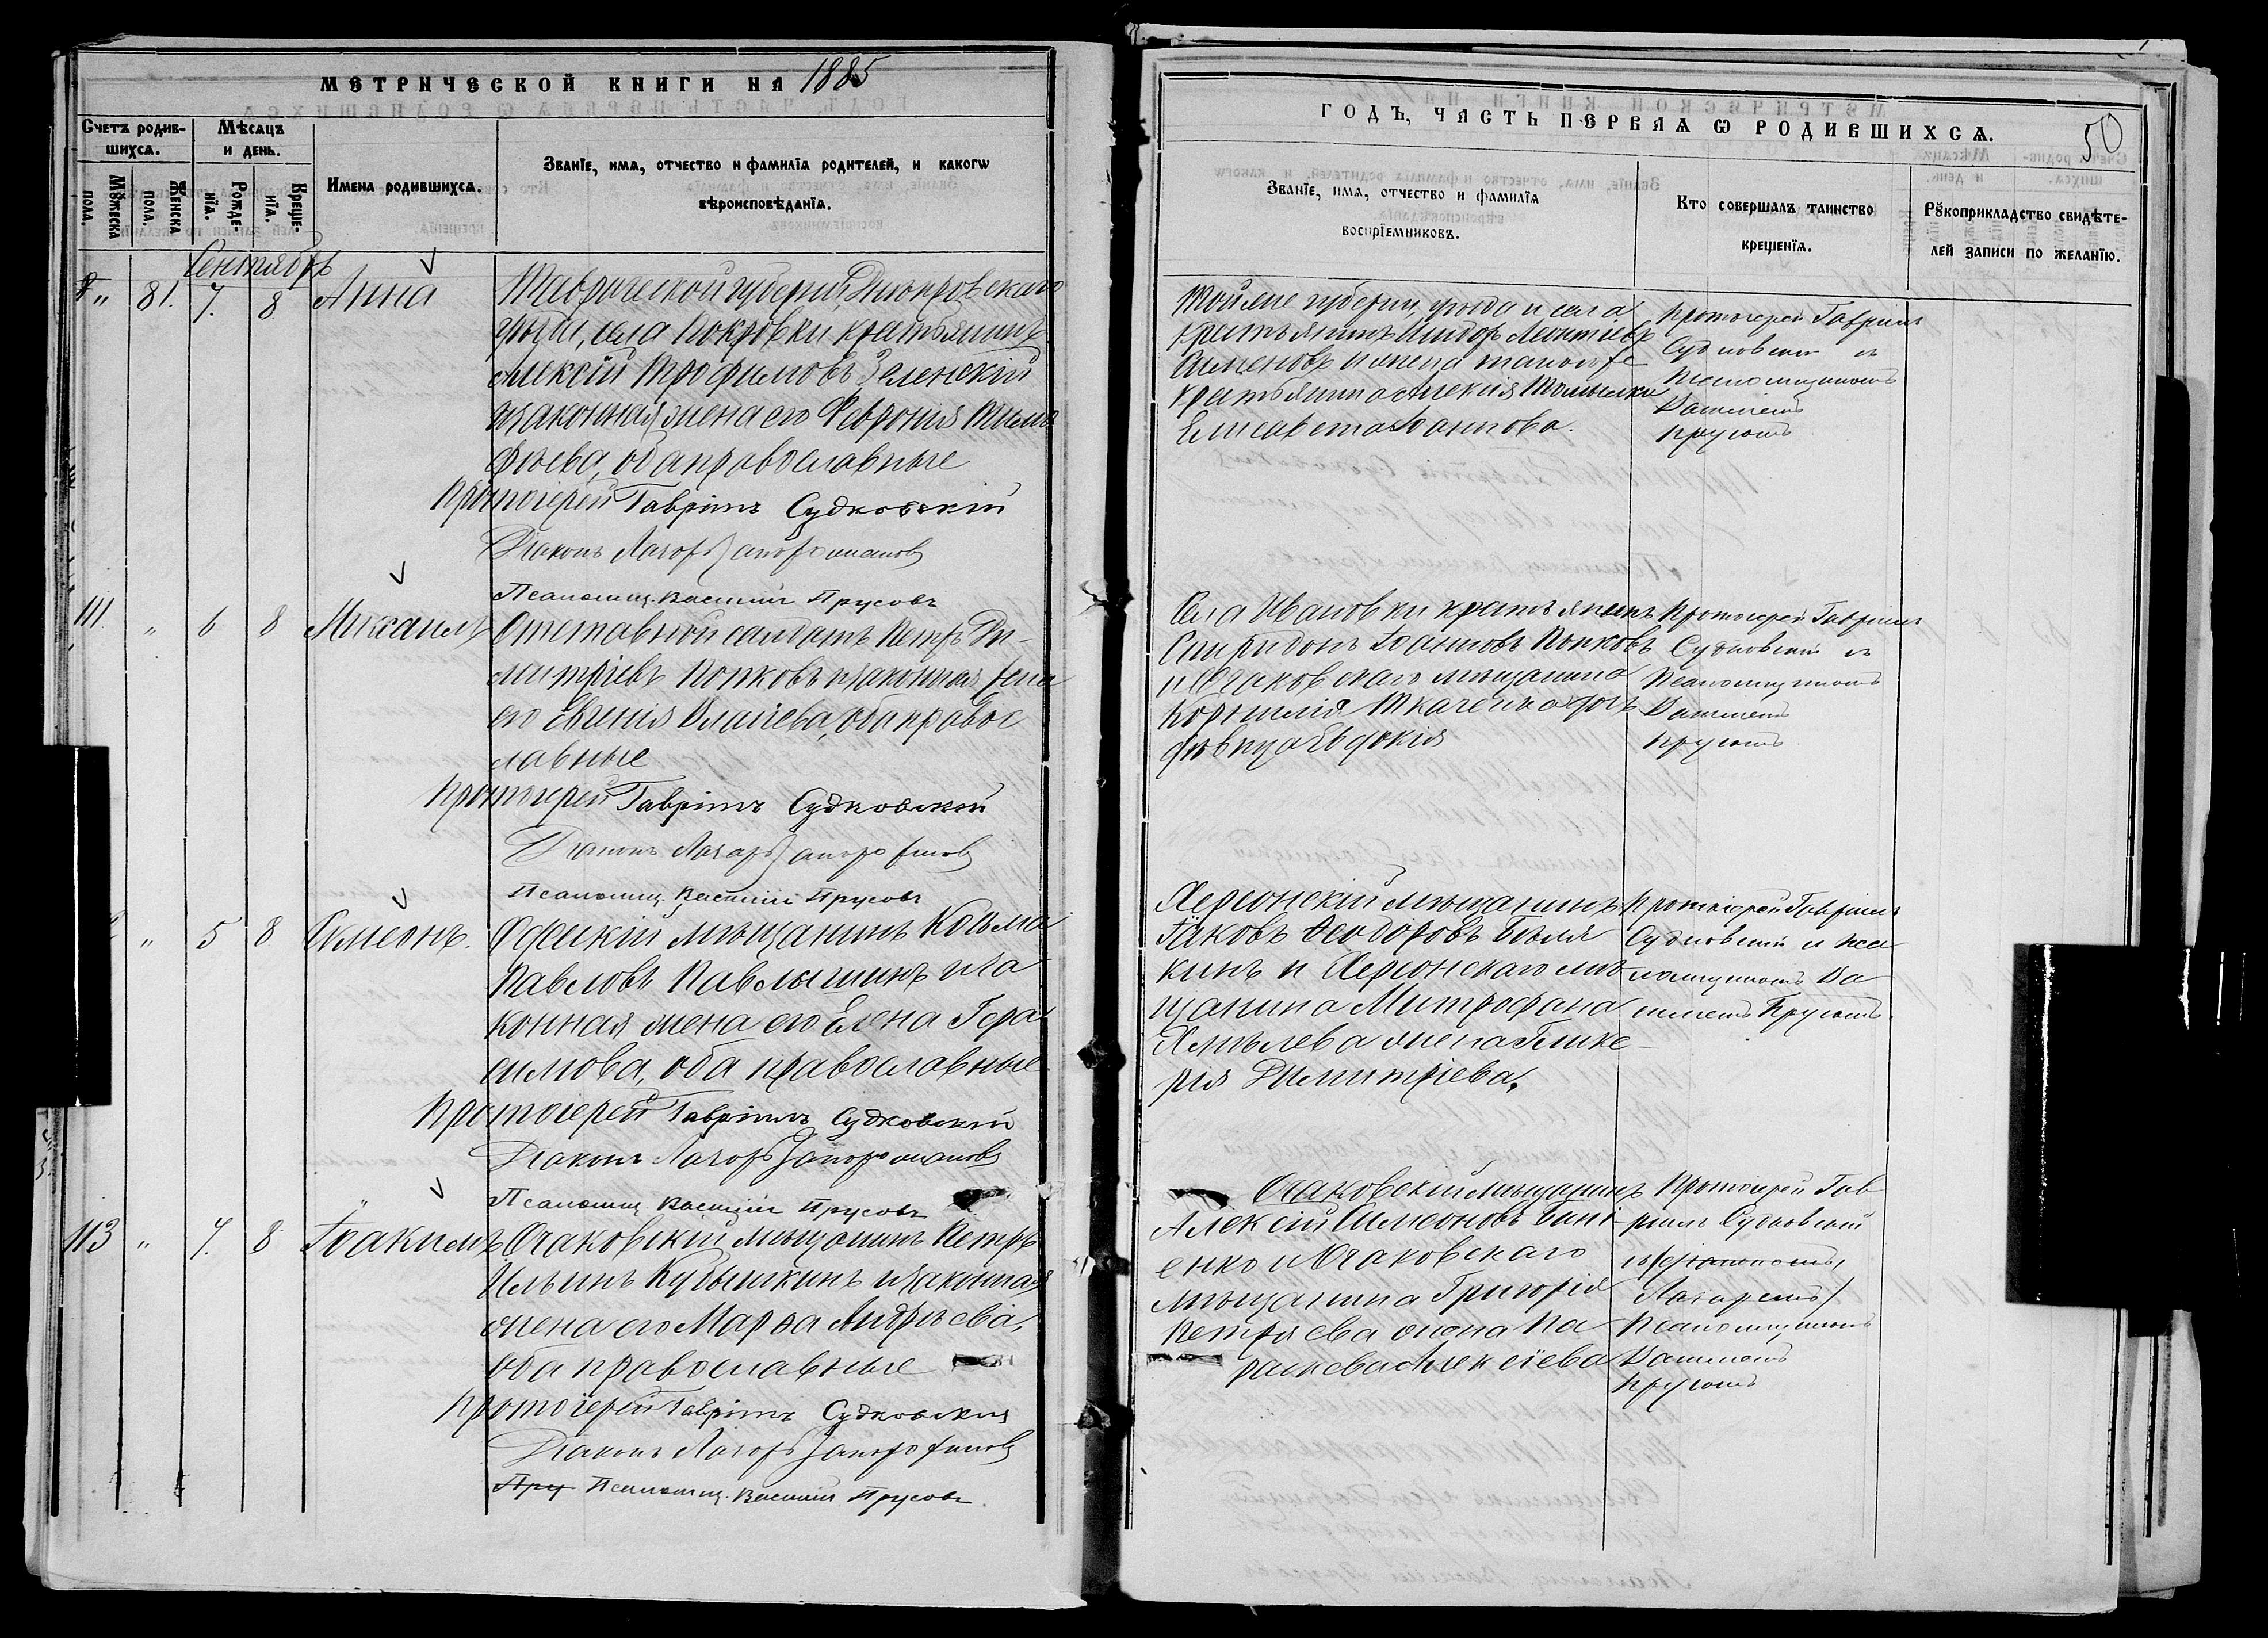 МЕТРИЧЕСКОЙ КНИГИ НА 1885
Счетъ родив-
шихсѧ.
Мѣсѧцъ
и день.
Мꙋжеска
пола.
Женска
пола.
Рожде-
нїѧ.
Креще-
нїѧ.
Имена родившихсѧ.
Званїе, имѧ, отчество и фамилїѧ родителей, и какогѡ
вѣроисповѣданїѧ.
Сентябрь
81. 7. 8 Анна
Таврической губерніи, Днѣпровскаго
уѣзда, села Покровки крестьянинъ
Алексій Трофимовъ Зеленскій
и законная жена его Феврония Тимо
фѣева, оба православные
Протоіерей Гавріилъ Судковскій
Діаконъ Лазарь Запорожановъ
Псаломщ. Василій Прусовъ
111. " 6 8 Михаилъ
Отставной солдатъ Петръ Ди-
митріевъ Попковъ и законная жена
его Евгенія Власіева, оба правос
лавные
Протоіерей Гавріилъ Судковский
Діаконъ Лазарь Запорожановъ
Псаломщ. Василій Прусовъ
2 " 5 8 Симеонъ.
Одескій мѣщанинъ Козьма
Павловъ Павлышинъ и за
конная жена его Елена Гера
симова, оба православные
Протоіерей Гавріилъ Судковский
Діаконъ Лазарь Запорожановъ
Псаломщ. Василій Прусовъ
113 " 7. 8 Іоакимъ
Очаковскій мѣщанинъ Петръ
Ильинъ Кубышкинъ и законная
жена его Марѳа Андрѣева,
оба православные
Протоіерей Гавріилъ Судковский
Діаконъ Лазарь Запорожановъ
Пру Псаломщ. Василій Прусовъ.
ГОДЪ, ЧАСТЬ ПЕРВАѦ Ѡ РОДИВШИХСѦ.
50
Званїе, имѧ, отчество и фамилїѧ
воспрїемниковъ.
Кто совершалъ таинство
крещенїѧ.
Рꙋкоприкладство свидѣте-
лей записи по желанїю.
Той же губерніи, уѣзда и села
крестьянинъ Исидоръ Леонтіевъ
Симоновъ и того же
крестьянина Алексія жена
Елисавета Іоаннова.
Протоіерей Гавріилъ
Судковскій съ
Псаломщикомъ
Василіемъ
Прусомъ
Села Ивановки крестьянинъ
Спиридонъ Іоанновъ Попковъ
и Очаковскаго мѣщанина
Корнилія Ткаченка дочь
дѣвица Евдокія
Протоіерей Гавріилъ
Судковскій съ
Псаломщикомъ
Василіемъ
Прусомъ
Херсонскій мѣщанинъ
Іаковъ Ѳеодоровъ Беля
кинъ и Херсонскаго мѣ
щанина Митрофана
Хмѣлева жена Глике-
рия Димитріева.
Протоіерей Гавріилъ
Судковскій и Пса
ломщикомъ Ва
силіемъ Прусомъ
Очаковскій мѣщанинъ
Алексій Симеоновъ
енко и Очаковскаго
мѣщанина Григорія
Петряева жена Па
раскева Алексіева
Протоіерей Гав
ріилъ Судковскій
Лазаремъ
Псаломщикомъ
Василіемъ
Прусомъ